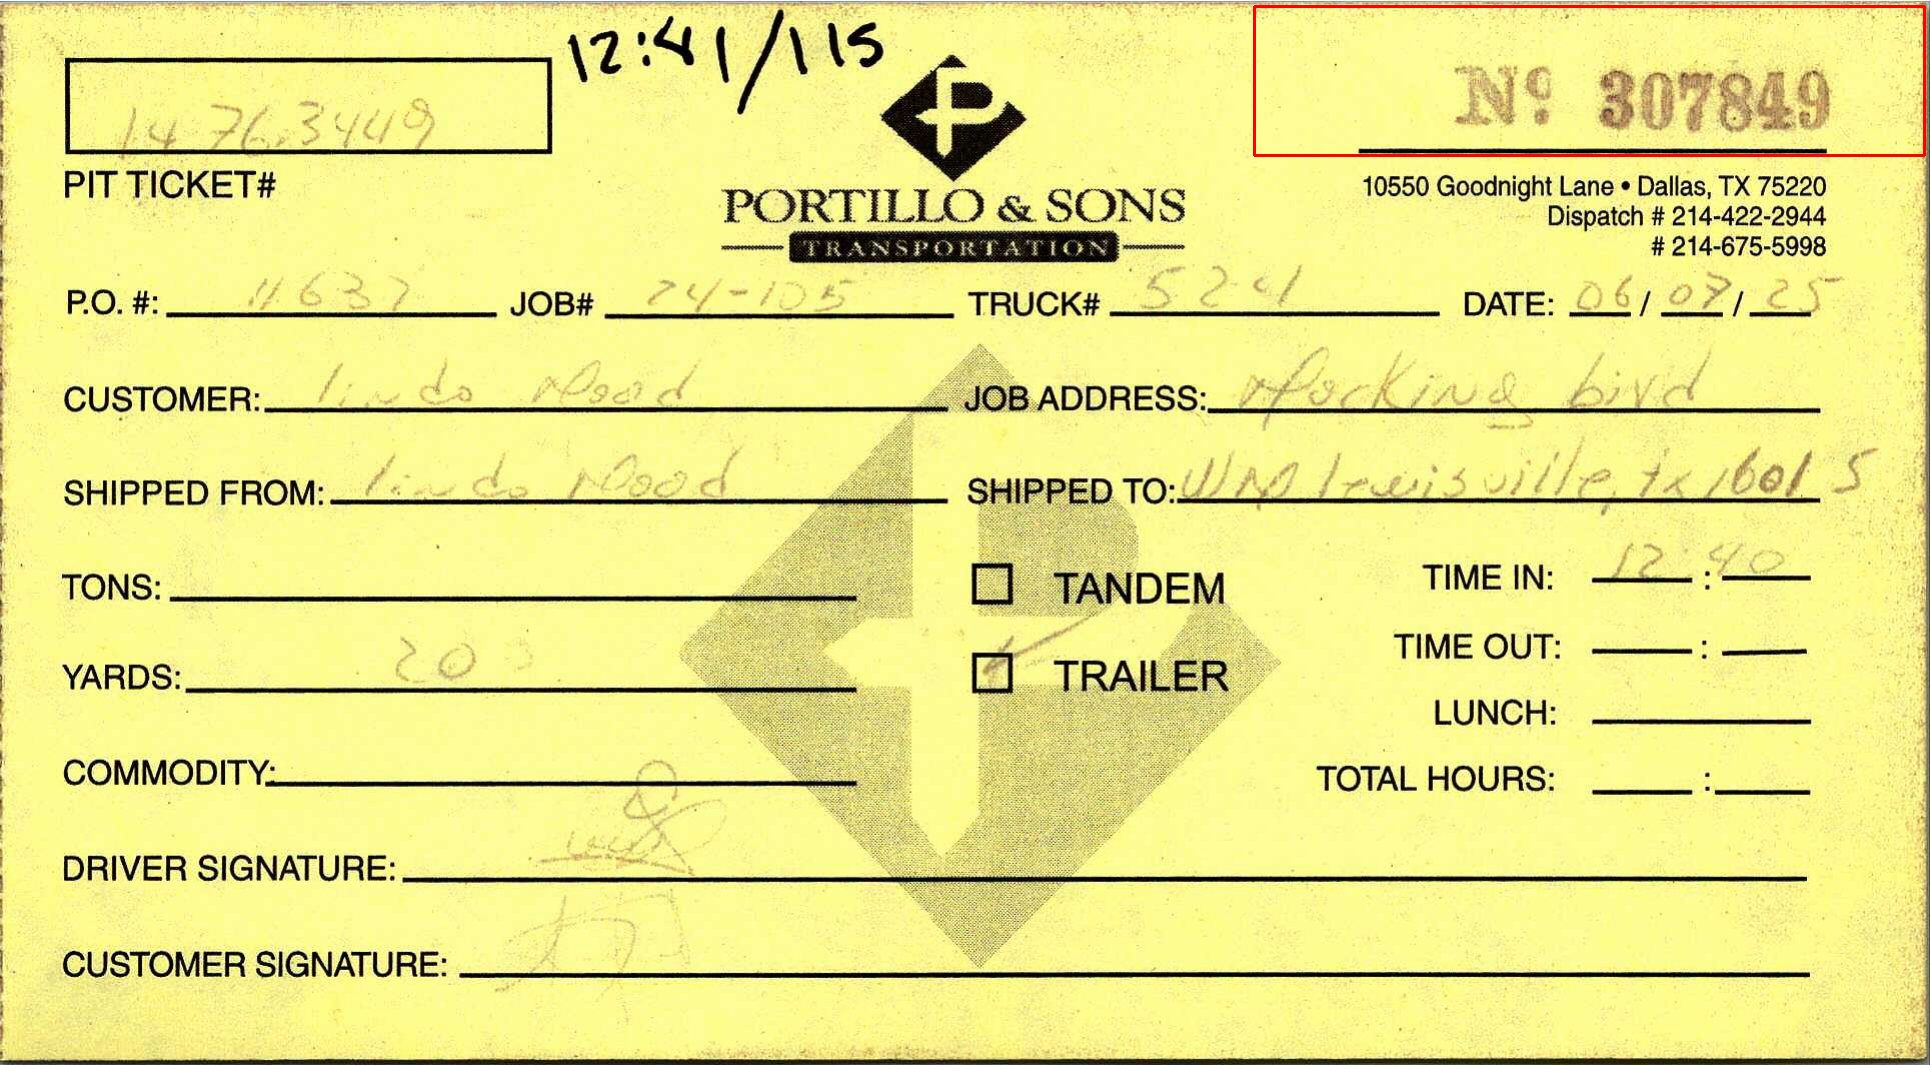 12:41/115
1476.3449
Nº 307849
PIT TICKET#
PORTILLO & SONS
TRANSPORTATION
10550 Goodnight Lane • Dallas, TX 75220
Dispatch # 214-422-2944
# 214-675-5998
P.O. #: 11637 JOB# 24-105 TRUCK# 524 DATE: 06/07/25
CUSTOMER: lindo Mood JOB ADDRESS: Mocking bird
SHIPPED FROM: lindo Mood SHIPPED TO: WM lewisville, tx 1601 S
TONS: TANDEM TIME IN: 12:40
YARDS: 20 TRAILER TIME OUT: :
LUNCH:
COMMODITY: TOTAL HOURS: :
DRIVER SIGNATURE:
CUSTOMER SIGNATURE: